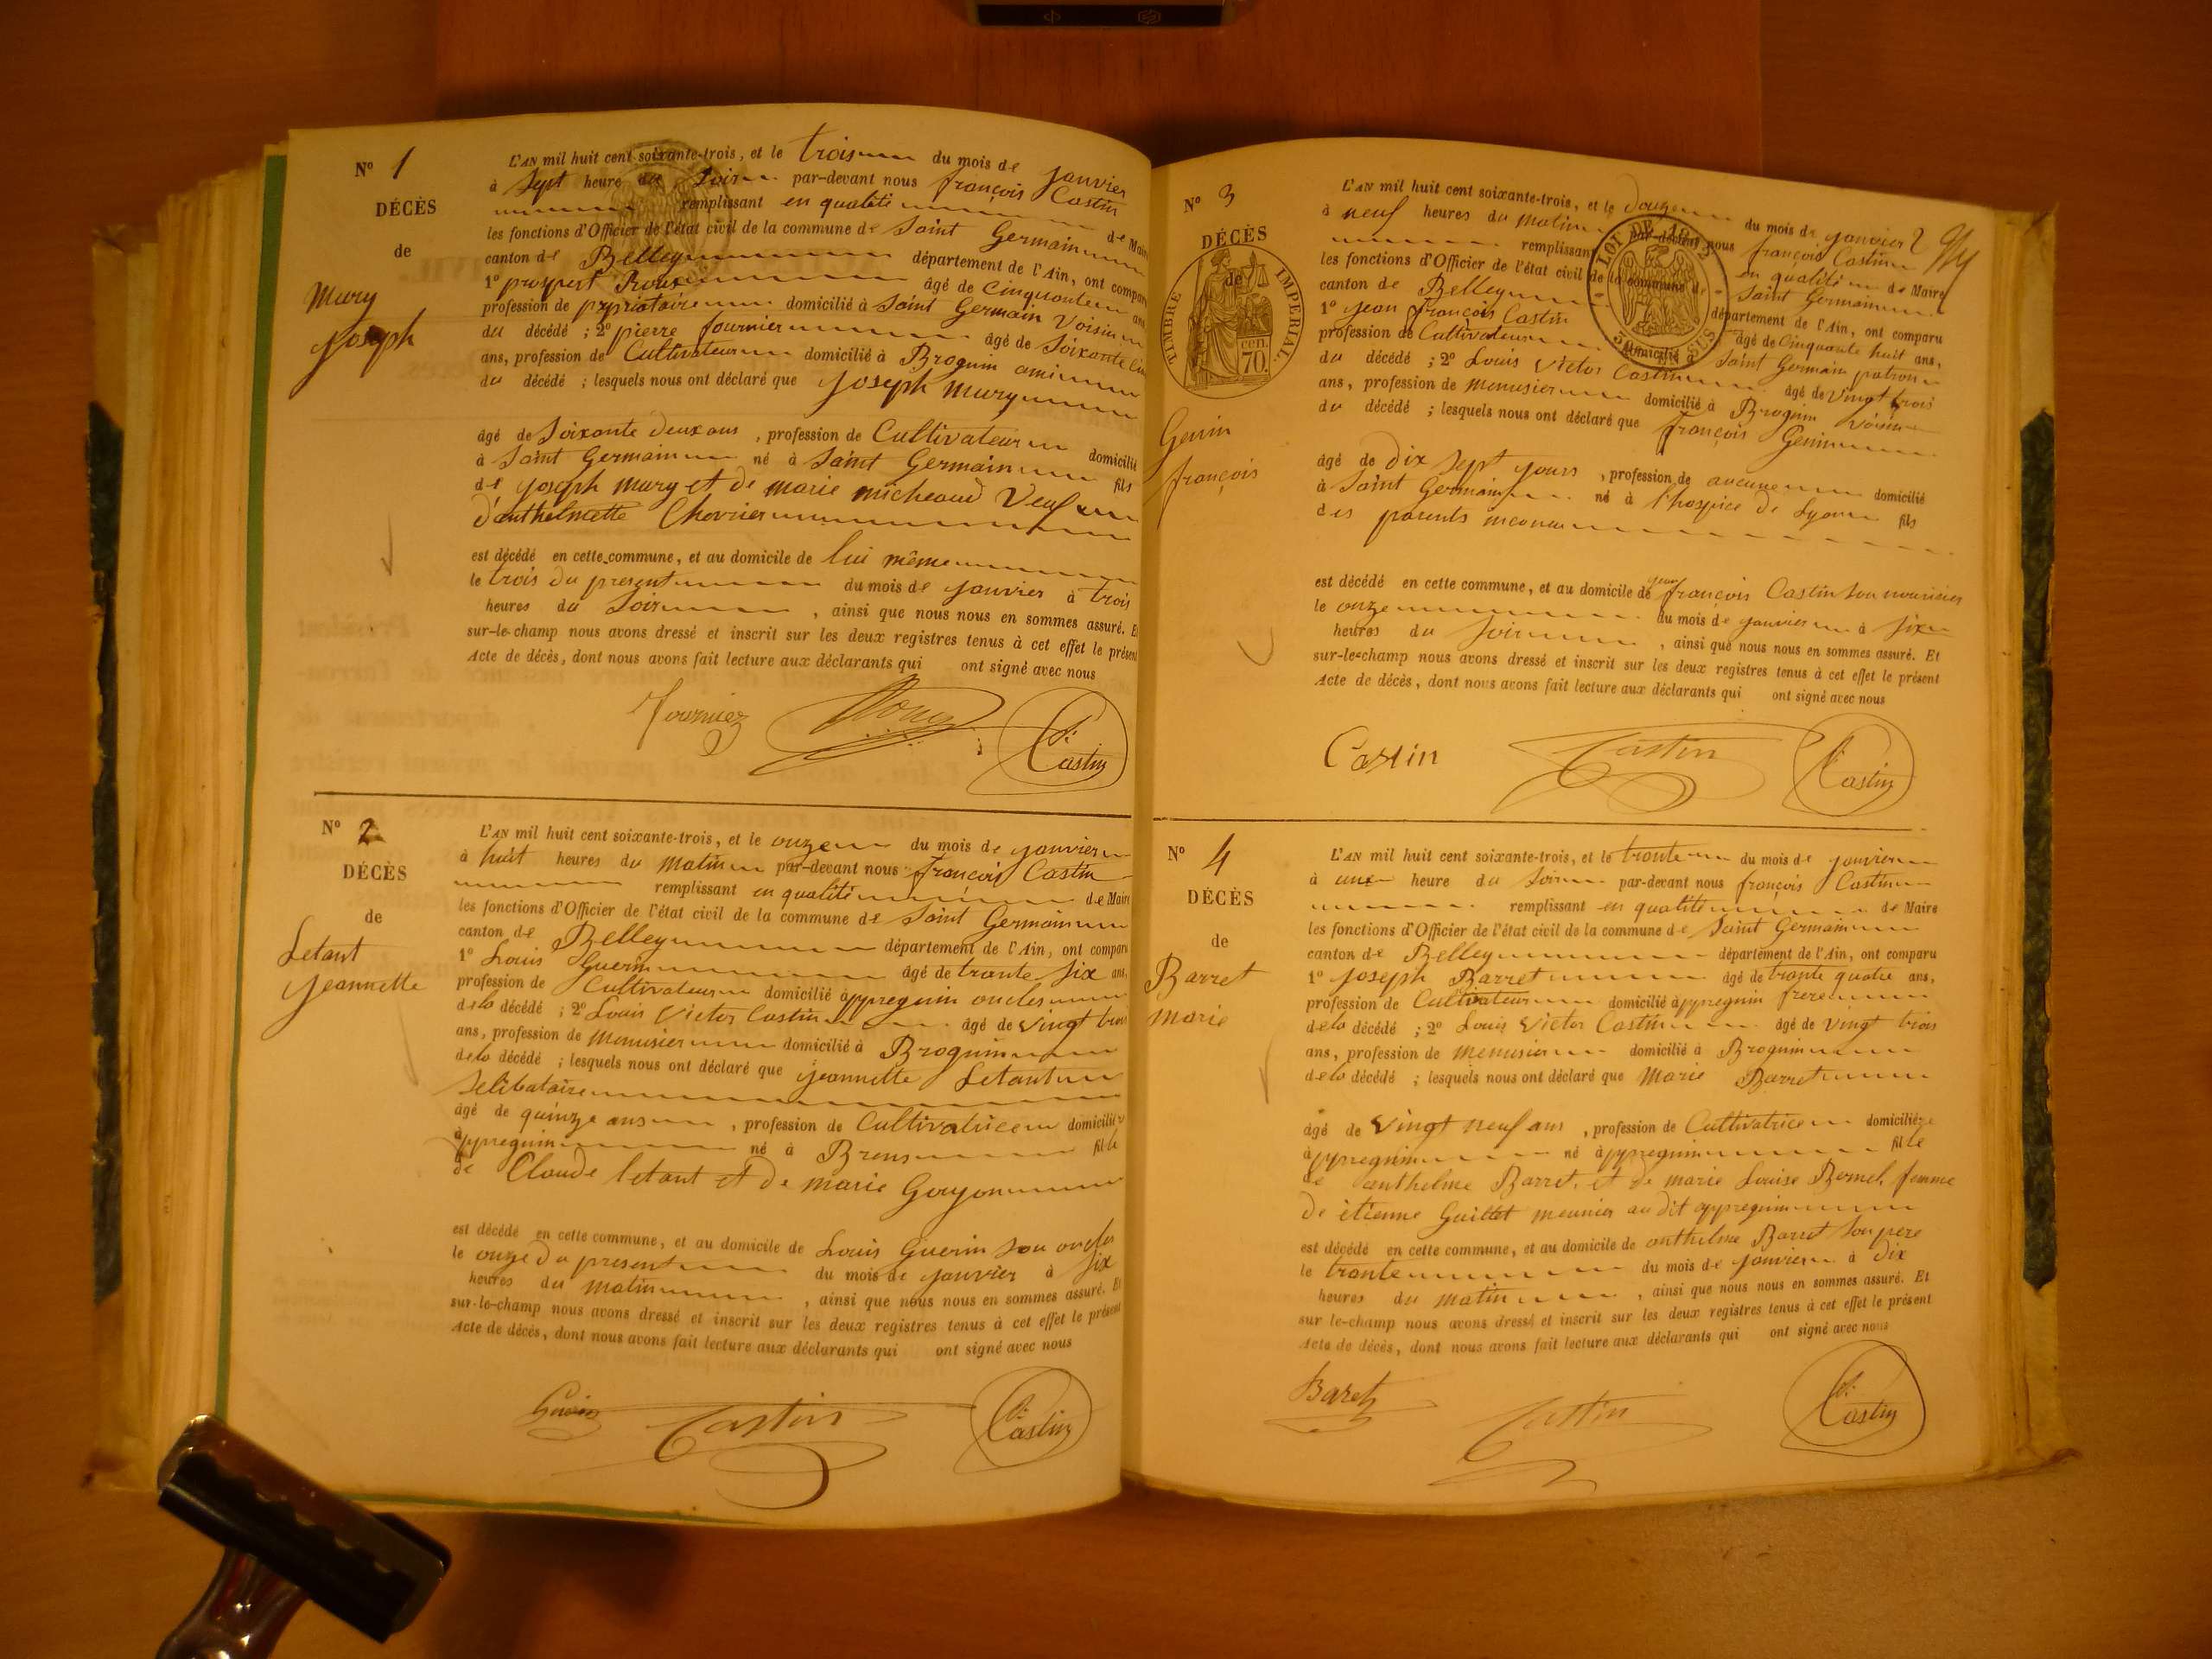 N° 1
DÉCÈS
de
Mury
Joseph
L'AN mil huit cent soixante-trois, et le trois du mois de janvier
à sept heure du soir par-devant nous françois Castin
remplissant en qualité de Maire
les fonctions d'Officier de l'état civil de la commune de Saint Germain
canton de Belley département de l'Ain, ont comparu
1° prospert Roux âgé de Cinquante ans
profession de propriataire domicilié à Saint Germain Voisin
du décédé ; 2° pierre fournier âgé de Soixante
ans, profession de Cultivateur domicilié à Brognin ami
du décédé ; lesquels nous ont déclaré que Joseph Mury
âgé de Soixante deux ans , profession de Cultivateur domicilié
à Saint Germain né à Saint Germain fils
de Joseph Mury et de marie micheaud Veuf
d'anthelmette Chevrier
est décédé en cette commune, et au domicile de lui même
le trois du present du mois de janvier à trois
heures du Soir , ainsi que nous nous en sommes assuré. Et
sur-le-champ nous avons dressé et inscrit sur les deux registres tenus à cet effet le présent
Acte de décès, dont nous avons fait lecture aux déclarants qui ont signé avec nous
Fournier Roux fs Castin
N° 2
DÉCÈS
de
Letant
Jeannette
L'AN mil huit cent soixante-trois, et le onze du mois de janvier
à huit heures du matin par-devant nous françois Castin
remplissant en qualité de Maire
les fonctions d'Officier de l'état civil de la commune de Saint Germain
canton de Belley département de l'Ain, ont comparu
1° Louis Guerin âgé de trante six ans,
profession de Cultivateur domicilié à appregnin oncles
dela décédé ; 2° Louis Victor Castin âgé de Vingt trois
ans, profession de Menusier domicilié à Brognin
dela décédé ; lesquels nous ont déclaré que Jeannette Letant
Selibataire
âgé de quinze ans , profession de Cultivatrice domiciliée
à appregnin né à Brens fille
de Claude letant et de marie Goujon
est décédé en cette commune, et au domicile de Louis Guerin Son oncles
le onze du present du mois de janvier à Six
heures du matin , ainsi que nous nous en sommes assuré. Et
sur-le-champ nous avons dressé et inscrit sur les deux registres tenus à cet effet le présent
Acte de décès, dont nous avons fait lecture aux déclarants qui ont signé avec nous
Guerin Castin fs Castin
N° 3
DÉCÈS
de
TIMBRE IMPERIAL.
cen. 70.
Genin
françois
L'AN mil huit cent soixante-trois, et le douze du mois de janvier
à neuf heures du matin par-devant nous françois Castin
remplissant en qualité de Maire
les fonctions d'Officier de l'état civil de la commune de Saint Germain
LOI DE 1862
EN SUS
canton de Belley département de l'Ain, ont comparu
1° Jean françois Castin âgé de Cinquante huit ans,
profession de Cultivateur domicilié à Saint Germain patron
du décédé ; 2° Louis Victor Castin âgé de Vingt trois
ans, profession de menusier domicilié à Brognin Voisin
du décédé ; lesquels nous ont déclaré que françois Genin
âgé de dix sept jours , profession de aucune domicilié
à Saint Germain né à l'hospice de Lyon fils
des parents inconnu
est décédé en cette commune, et au domicile de jean françois Castin son nouricier
le onze du mois de janvier à Six
heures du Soir , ainsi que nous nous en sommes assuré. Et
sur-le-champ nous avons dressé et inscrit sur les deux registres tenus à cet effet le présent
Acte de décès, dont nous avons fait lecture aux déclarants qui ont signé avec nous
Castin Castin fs Castin
N° 4
DÉCÈS
de
Barret
Marie
L'AN mil huit cent soixante-trois, et le trante du mois de janvier
à une heure du Soir par-devant nous françois Castin
remplissant en qualité de Maire
les fonctions d'Officier de l'état civil de la commune de Saint Germain
canton de Belley département de l'Ain, ont comparu
1° Joseph Barret âgé de trante quatre ans,
profession de Cultivateur domicilié à appregnin frere
dela décédé ; 2° Louis Victor Castin âgé de Vingt trois
ans, profession de menusier domicilié à Brognin
dela décédé ; lesquels nous ont déclaré que Marie Barret
âgé de Vingt neuf ans , profession de Cultivatrice domiciliée
à appregnin né à appregnin fille
de anthelme Barret, et de marie Louise Bornel, femme
De etienne Guillet meunier au dit appregnin
est décédé en cette commune, et au domicile de anthelme Barret Son pere
le trante du mois de janvier à Dix
heures du matin , ainsi que nous nous en sommes assuré. Et
sur le-champ nous avons dressé et inscrit sur les deux registres tenus à cet effet le présent
Acte de décès, dont nous avons fait lecture aux déclarants qui ont signé avec nous
Baret Castin fs Castin